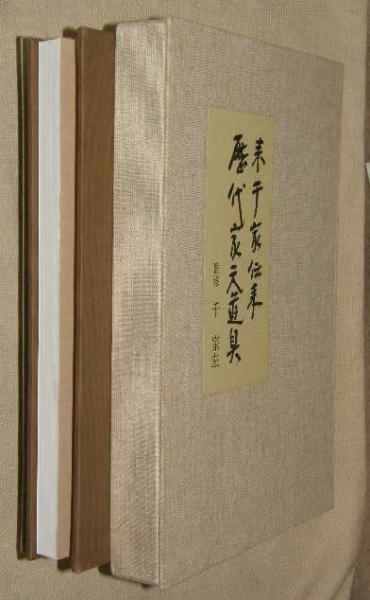 表千家伝来
歴代家元道具
監修 千 宗左